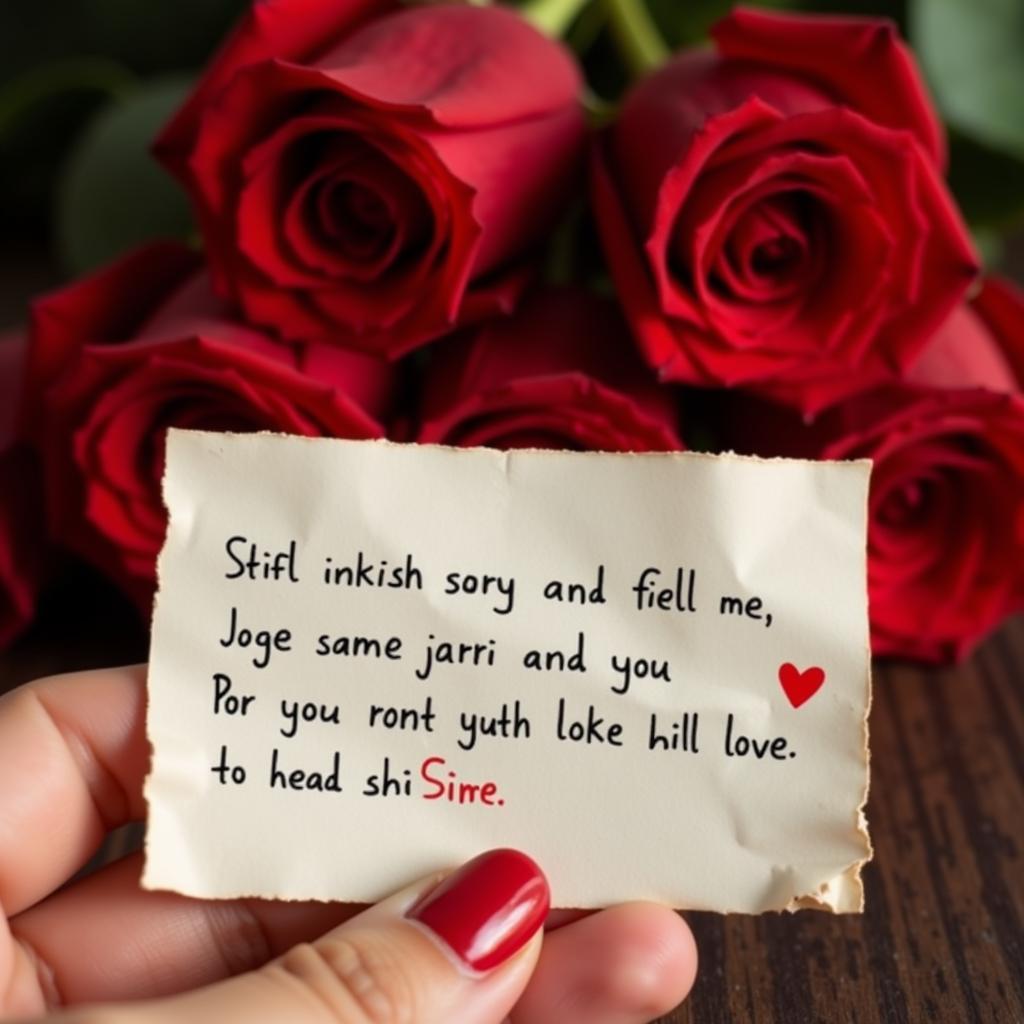 Stifl inkish sory and fiell me,
Joge same jarri and you
Por you ront yuth loke hill love.
to head shi Sirre.